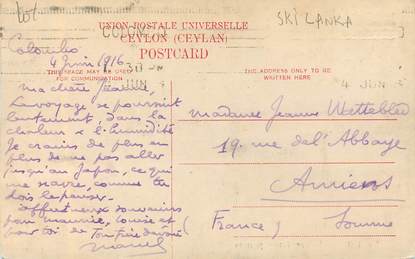 SRI LANKA
UNION POSTALE UNIVERSELLE
CEYLON (CEYLAN)
POSTCARD
THIS SPACE MAY BE USED
FOR COMMUNICATION
THE ADDRESS ONLY TO BE
WRITTEN HERE
4 JUN
Colombo
4 Juin 1916
Ma chère Jeanne,
Le voyage se poursuit
lentement, dans la
chaleur & l'humidité
Je crains de plus en
plus de ne pas aller
jusqu'au Japon, ce qui
me navre, comme tu
dois le penser.
Affectueux souvenirs
pour Maurice, Louise et
pour toi de ton frère dévoué
Marcel
Madame Jeanne
19. rue de l'Abbaye
Amiens
(France) Somme